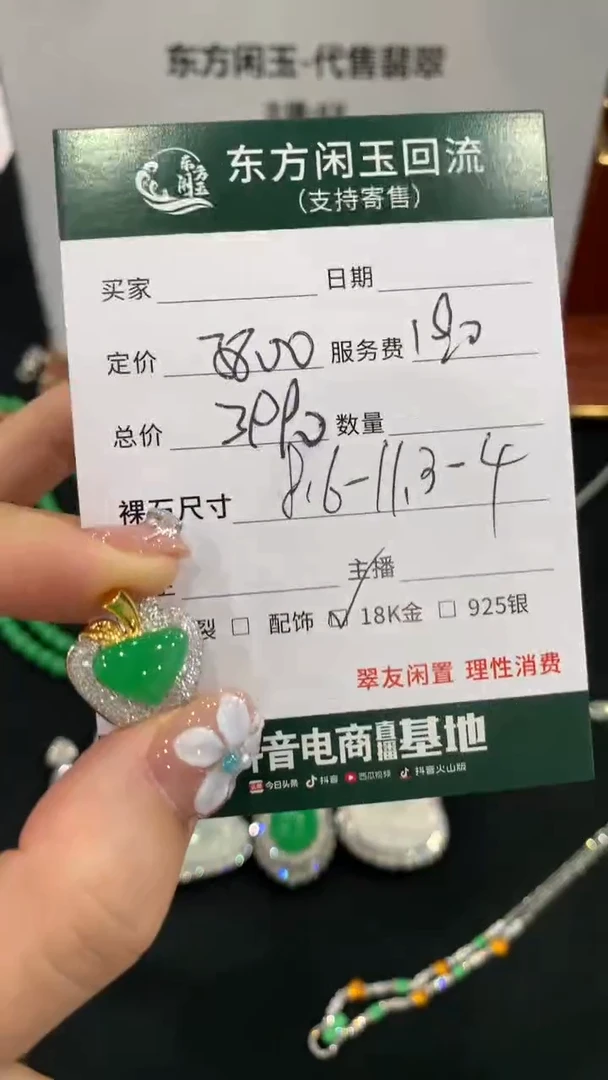 东方闲玉-代售翡翠
东方闲玉
东方闲玉回流
(支持寄售)
买家 日期
定价 3800 服务费 190
总价 3990 数量
裸石尺寸 8.6-11.3-4
主播
裂 □ 配饰 ☑ 18K金 □ 925银
翠友闲置 理性消费
抖音电商直播基地
今日头条 抖音 西瓜视频 抖音火山版